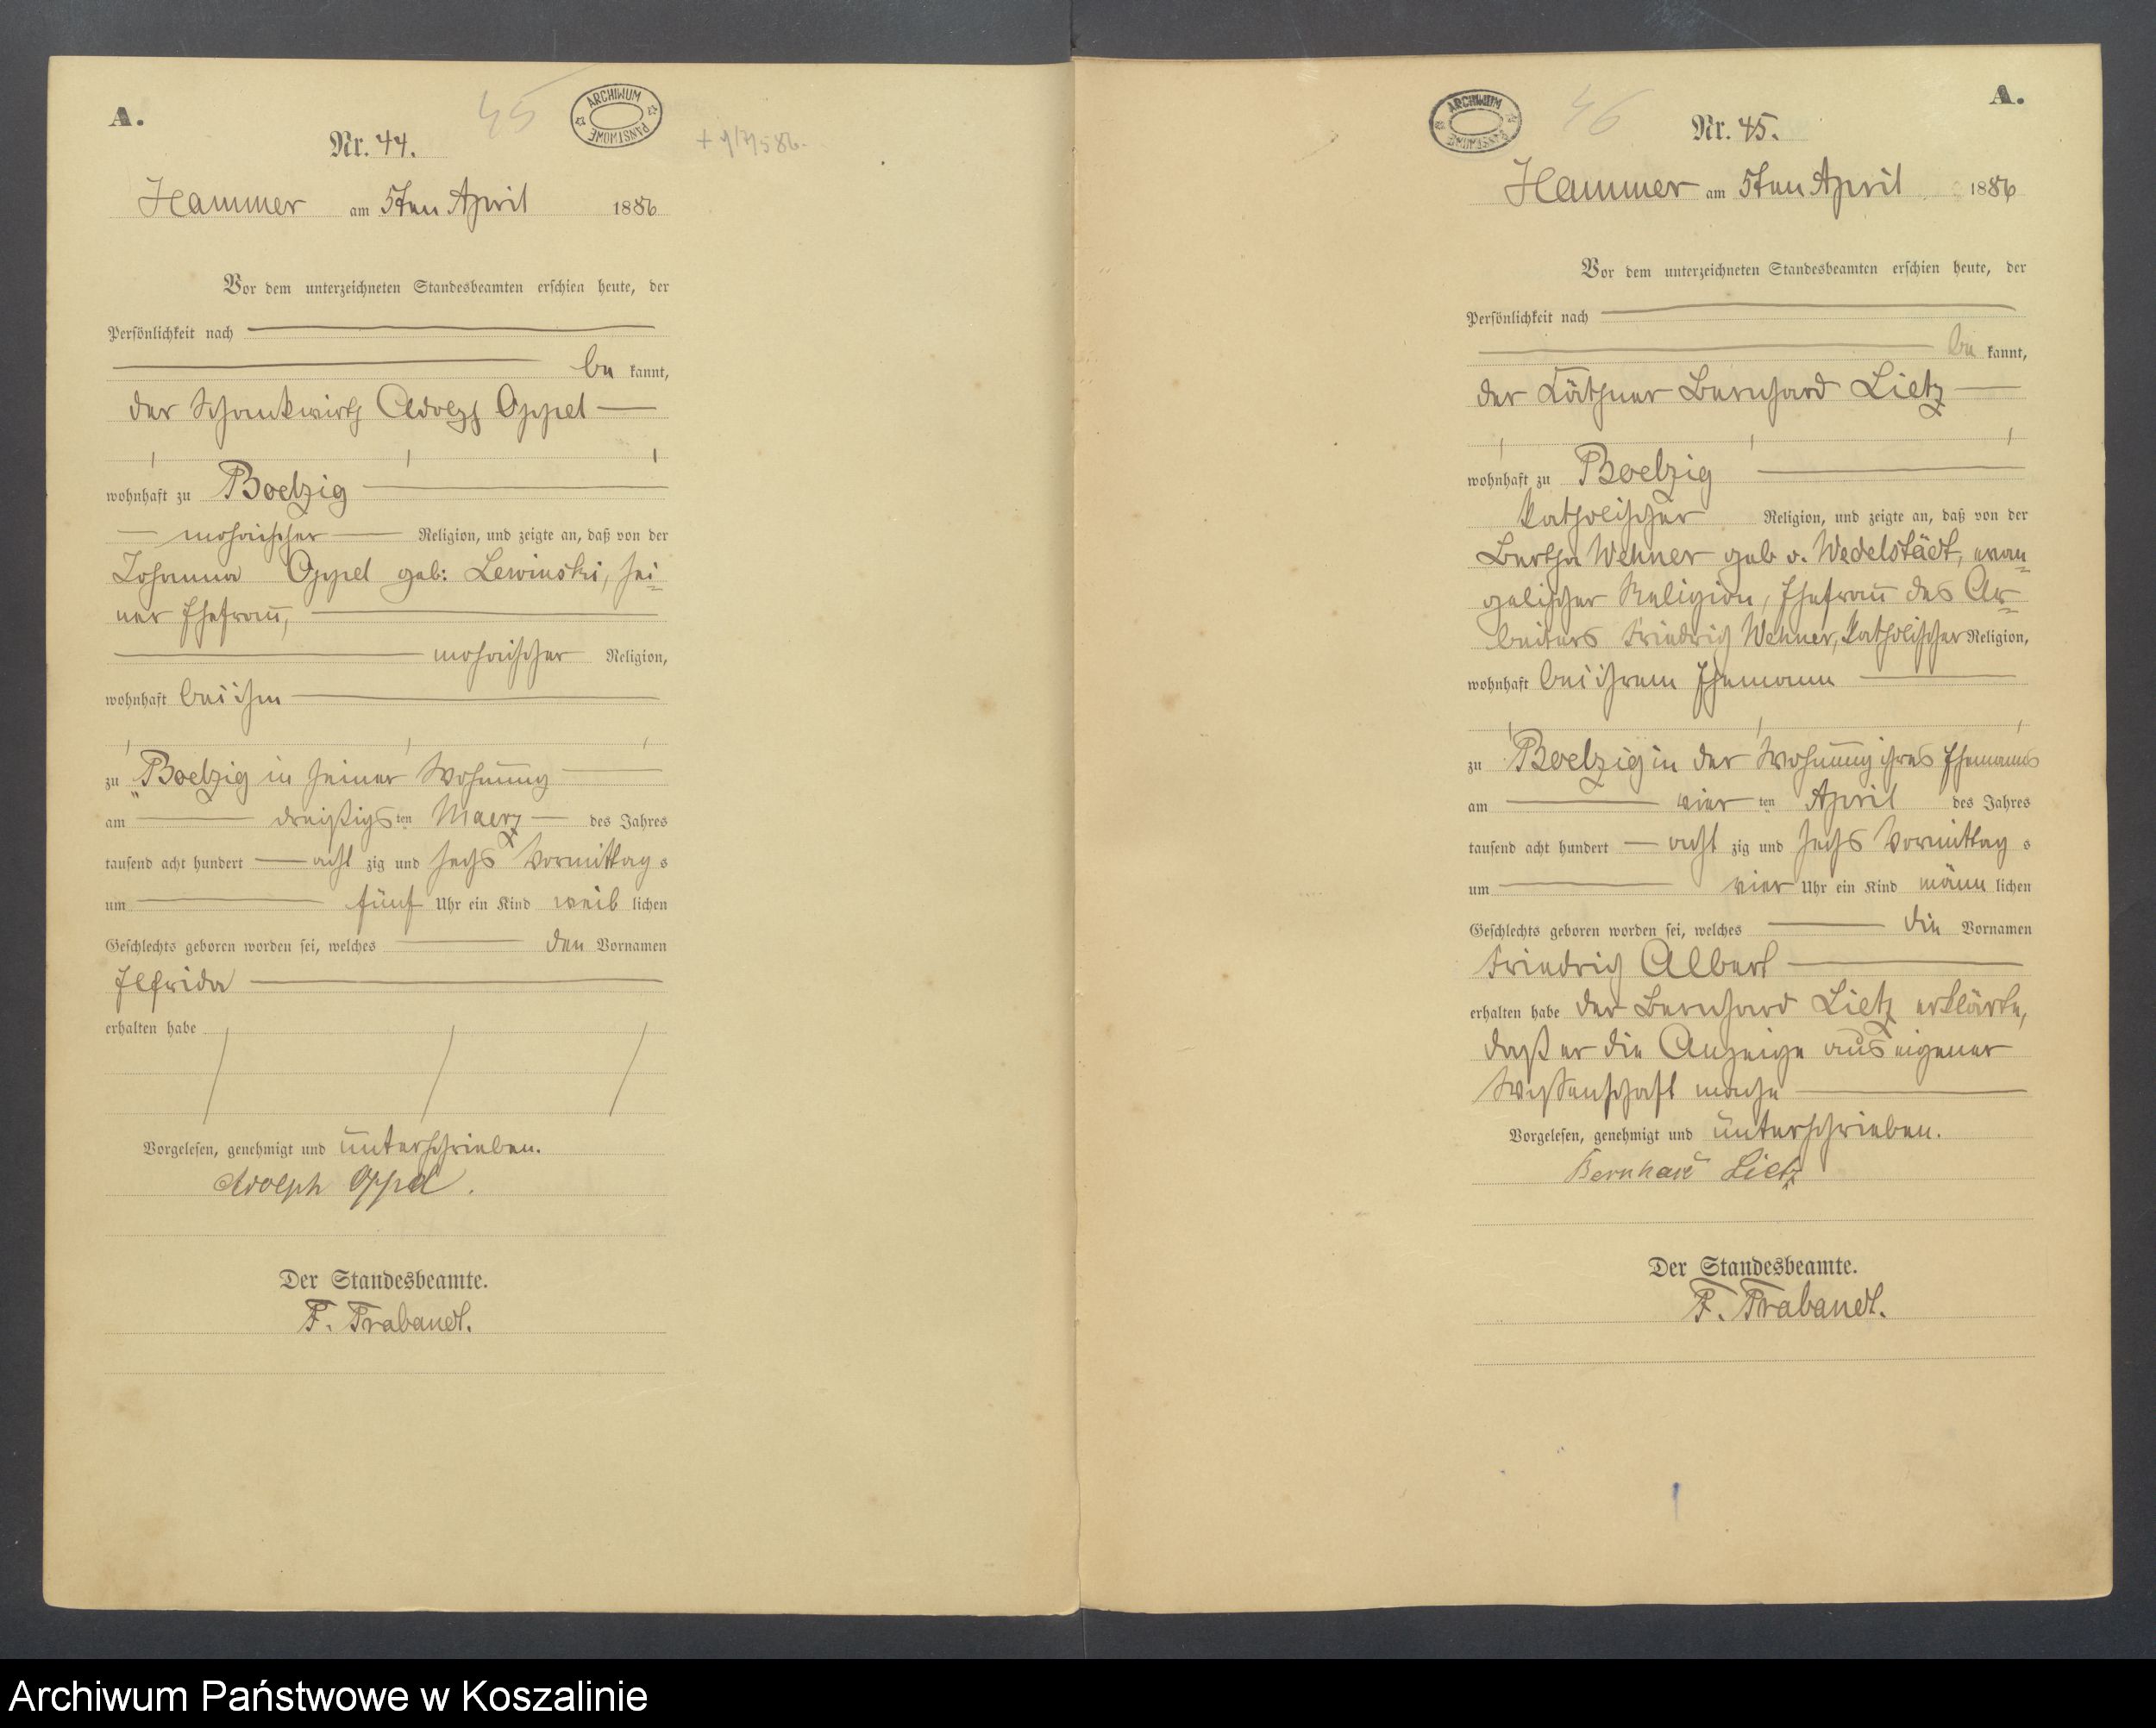 A.
45
ARCHIWUM PAŃSTWOWE
Nr. 44.
Hammer am 5ten April 1886
Vor dem unterzeichneten Standesbeamten erschien heute, der
Persönlichkeit nach
be kannt,
der Schankwirth Adolph Oppel
wohnhaft zu Boelzig
mosaischer Religion, und zeigte an, daß von der
Johanna Oppel geb: Lewinski, sei=
ner Ehefrau,
mosaischer Religion,
wohnhaft bei ihm
zu Boelzig in seiner Wohnung
am dreißigsten Maerz des Jahres
tausend acht hundert acht zig und sechs Vormittags
um fünf Uhr ein Kind weib lichen
Geschlechts geboren worden sei, welches den Vornamen
Elfrida
erhalten habe
Vorgelesen, genehmigt und unterschrieben.
Adolph Oppel.
Der Standesbeamte.
F. Trabandt.
A.
46
ARCHIWUM PAŃSTWOWE
Nr. 45.
Hammer am 5ten April 1886
Vor dem unterzeichneten Standesbeamten erschien heute, der
Persönlichkeit nach
be kannt,
der Käthner Bernhard Lietz
wohnhaft zu Boelzig
katholischer Religion, und zeigte an, daß von der
Bertha Wehner geb v. Wedelstädt, evan=
gelischer Religion, Ehefrau des Ar=
beiters Friedrich Wehner, katholischer Religion,
wohnhaft bei ihrem Ehemann
zu Boelzig in der Wohnung ihres Ehemanns
am vier ten April des Jahres
tausend acht hundert acht zig und sechs Vormittags
um vier Uhr ein Kind männ lichen
Geschlechts geboren worden sei, welches die Vornamen
Friedrich Albert
erhalten habe der Bernhard Lietz erklärte,
daß er die Anzeige aus eigener
Wissenschaft mache
Vorgelesen, genehmigt und unterschrieben.
Bernhard Lietz
Der Standesbeamte.
F. Trabandt.
Archiwum Państwowe w Koszalinie